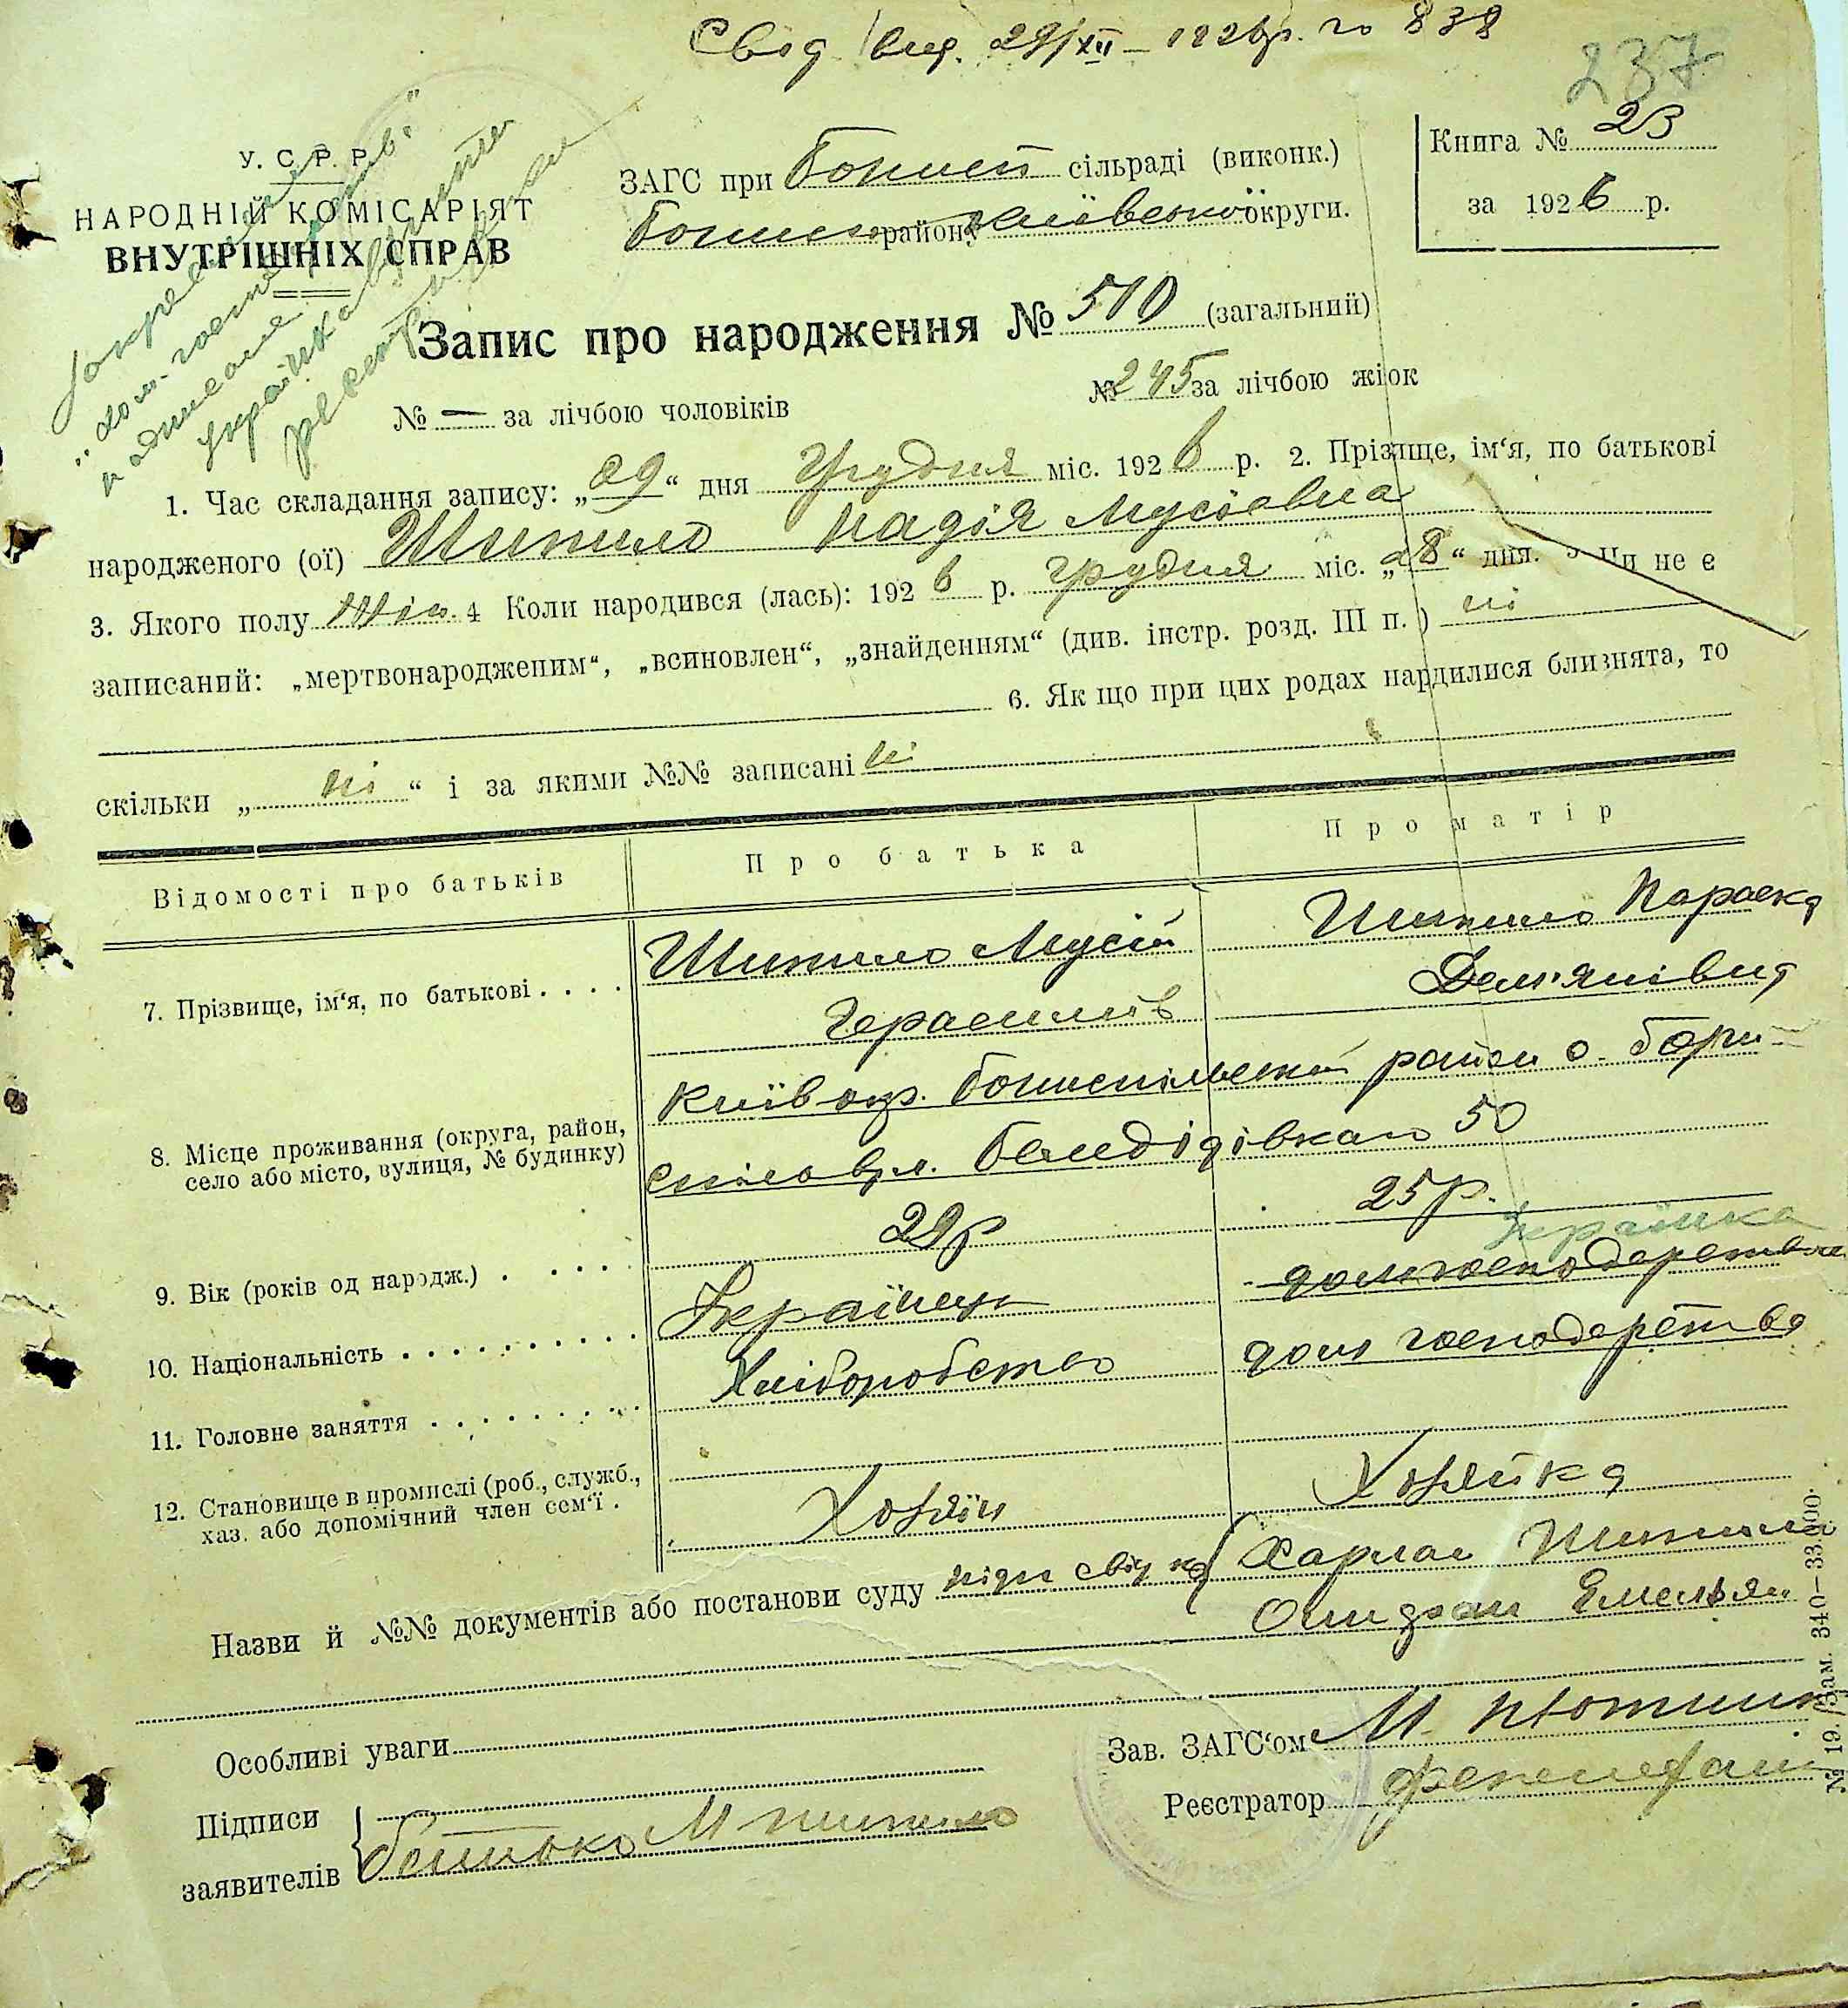 Свід вид. 29/XII – 1926р. 838
237
У. С. Р. Р.
НАРОДНІЙ КОМІСАРІЯТ
ВНУТРІШНІХ СПРАВ
ЗАГС при сільраді (виконк.)
району Київської округи.
Книга № 23
за 1926 р.
Запис про народження № 510 (загальний)
№ — за лічбою чоловіків
№ 245 за лічбою жінок
1. Час складання запису: „29“ дня Грудня міс. 1926 р. 2. Прізвище, ім‘я, по батькові
народженого (ої) Шипило Надія Мусіевна
3. Якого полу жін. 4 Коли народився (лась): 1926 р. Грудня міс. „28“ дня. Чи не є
записаний: „мертвонародженим“, „всиновлен“, „знайденням“ (див. інстр. розд. III п. ) ні
6. Як що при цих родах нардилися близнята, то
скільки „ ні “ і за якими №№ записані ні
Відомості про батьків
Про батька
Про матір
7. Прізвище, ім‘я, по батькові . . . .
Шипило Мусій
Герасимів
Шипило Параска
Дем'янівна
8. Місце проживання (округа, район,
село або місто, вулиця, № будинку)
Київ окр. район с. Бори-
спіль вул. 50
9. Вік (років од народж.) . . . . .
29р
25р.
Українка
10. Національність . . . . . . . . . .
Українець
домгосподарство
11. Головне заняття . . . . . . . . .
Хліборобство
дом господарство
12. Становище в промислі (роб., служб.,
хаз. або допомічний член сем‘ї .
Хозяїн
Хозяйка
Назви й №№ документів або постанови суду Харлан Шипило
Емельян
Особливі уваги
Зав. ЗАГС‘ом М
Реєстратор
Підписи
заявителів
батько М Шипило
№ 19. Зам. 340—33.000.